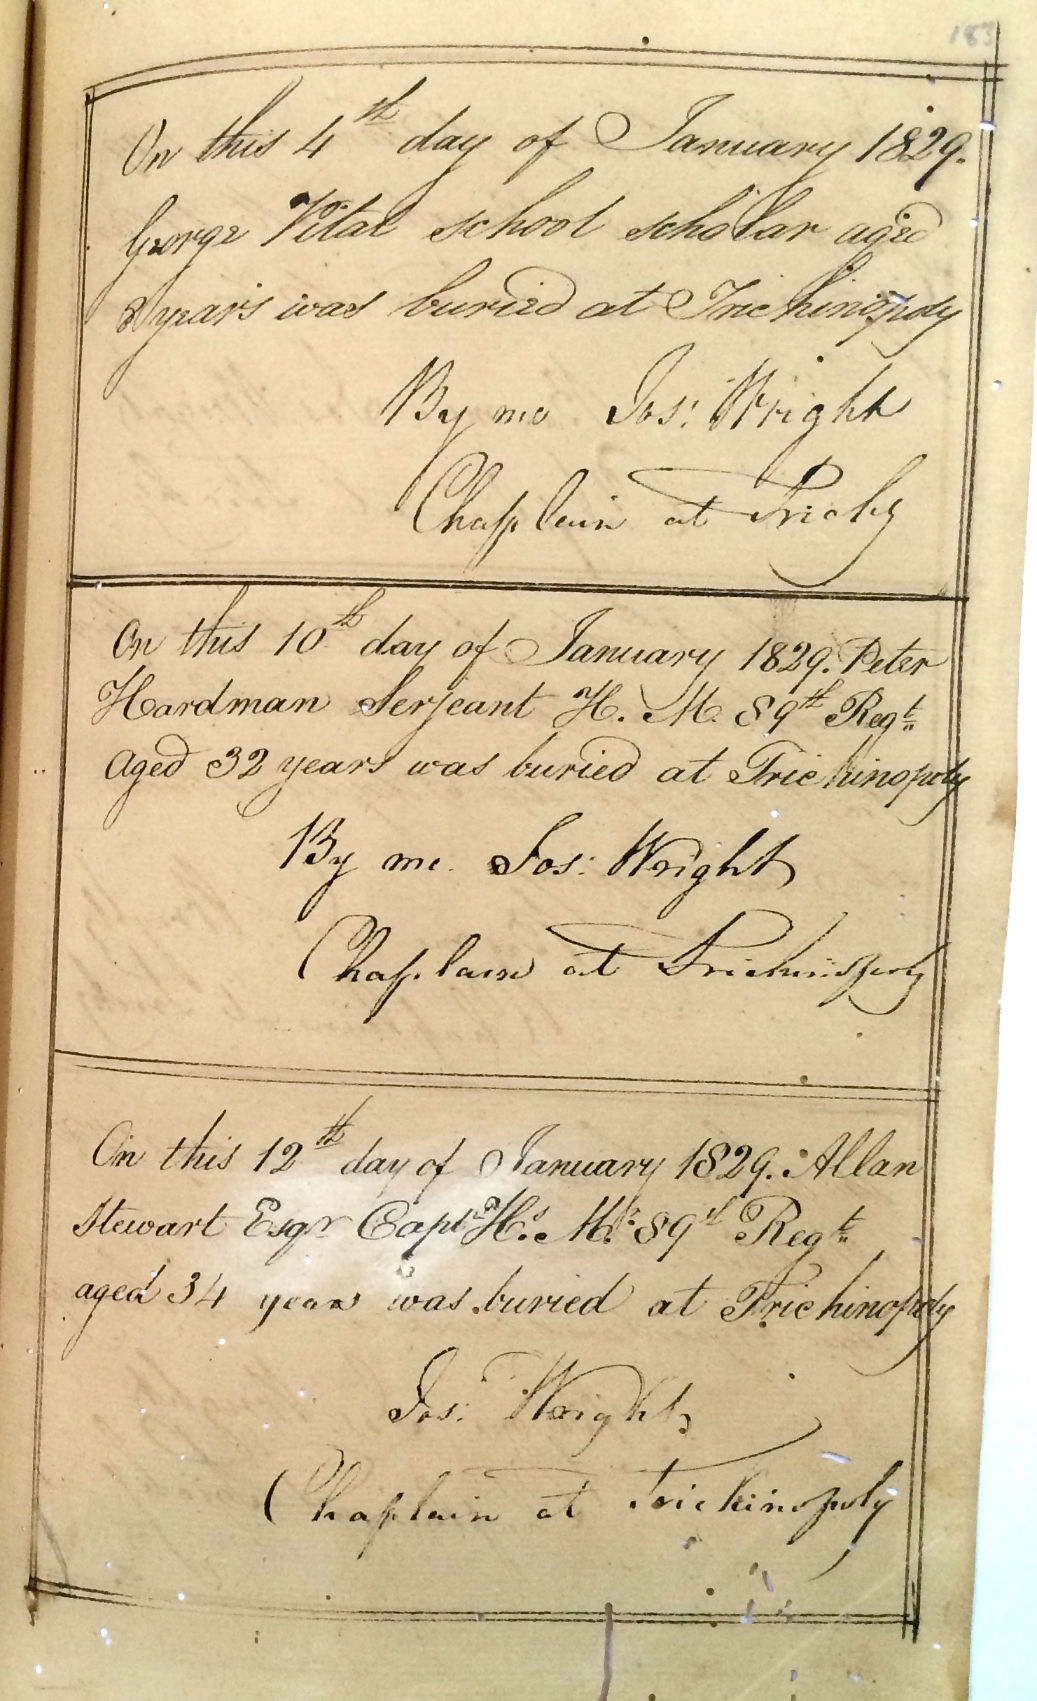 183
On this 4th day of January 1829.
George Vital school scholar aged
8 years was buried at Trichinopoly
By me Jos: Wright
Chaplain at Trichy
On this 10th day of January 1829. Peter
Hardman Serjeant H. M. 89th Regt
aged 32 years was buried at Trichinopoly
By me. Jos: Wright
Chaplain at Trichinopoly
On this 12th day of January 1829. Allan
Stewart Esqr Captn Hs. Ms. 89th Regt
aged 34 years was buried at Trichinopoly
Jos: Wright
Chaplain at Trichinopoly